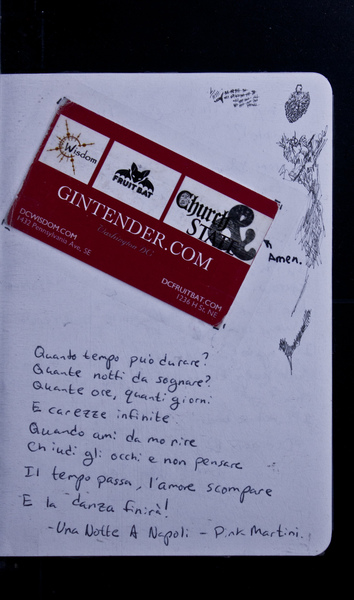 Wisdom
FRUITBAT
Church &
STATE
GINTENDER.COM
Washington DC
DCWISDOM.COM
1432 Pennsylvania Ave, SE
DCFRUITBAT.COM
1236 H St, NE
Amen.
Quanto tempo può durare?
Quante notti da sognare?
Quante ore, quanti giorni
E carezze infinite
Quando ami da morire
Chiudi gli occhi e non pensare
Il tempo passa, l'amore scompare
E la danza finirà!
-Una Notte A Napoli - Pink Martini.